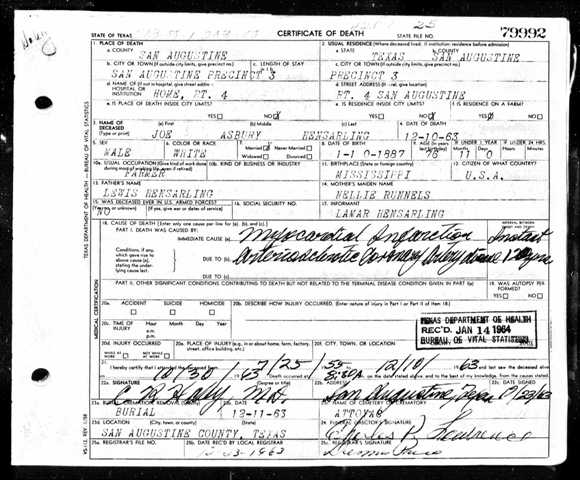 STATE OF TEXAS CERTIFICATE OF DEATH 79992
1. PLACE OF DEATH 2. USUAL RESIDENCE (Where deceased lived. If institution: residence before admission)
a. COUNTY SAN AUGUSTINE a. STATE TEXAS b. COUNTY SAN AUGUSTINE
b. CITY OR TOWN (If outside city limits, give precinct no.) c. LENGTH OF STAY c. CITY OR TOWN (If outside city limits, give precinct no.)
SAN AUGUSTINE PRECINCT 3 PRECINCT 3
d. NAME OF (If not in hospital, give street address) d. STREET ADDRESS (If rural, give location)
HOSPITAL OR INSTITUTION HOME, RT. 4 RT. 4 SAN AUGUSTINE
e. IS PLACE OF DEATH INSIDE CITY LIMITS? e. IS RESIDENCE INSIDE CITY LIMITS? f. IS RESIDENCE ON A FARM?
YES NO YES NO YES NO
3. NAME OF DECEASED (Type or print) (a) First (b) Middle (c) Last 4. DATE OF DEATH
JOE ASBURY HENSARLING 12-10-63
5. SEX 6. COLOR OR RACE 7. Married Never Married Widowed Divorced 8. DATE OF BIRTH 9. AGE IF UNDER 1 YEAR IF UNDER 24 HRS.
MALE WHITE 1-10-1887 76 11 0
10a. USUAL OCCUPATION 10b. KIND OF BUSINESS OR INDUSTRY 11. BIRTHPLACE 12. CITIZEN OF WHAT COUNTRY?
FARMER MISSISSIPPI U.S.A.
13. FATHER'S NAME 14. MOTHER'S MAIDEN NAME
LEWIS HENSARLING NELLIE RUNNELS
15. WAS DECEASED EVER IN U.S. ARMED FORCES? 16. SOCIAL SECURITY NO. 17. INFORMANT
(Yes, no or unknown) (If yes, give war or dates of service)
NO LAMAR HENSARLING
18. CAUSE OF DEATH (Enter only one cause per line for (a), (b), and (c).) INTERVAL BETWEEN ONSET AND DEATH
PART I. DEATH WAS CAUSED BY:
IMMEDIATE CAUSE (a) Myocardial Infarction Instant
Conditions, if any, which gave rise to above cause (a), stating the underlying cause last. DUE TO (b) Arteriosclerotic Coronary Artery disease
DUE TO (c)
PART II. OTHER SIGNIFICANT CONDITIONS CONTRIBUTING TO DEATH BUT NOT RELATED TO THE TERMINAL DISEASE CONDITION GIVEN IN PART I(a) 19. WAS AUTOPSY PERFORMED?
YES NO
20a. ACCIDENT SUICIDE HOMICIDE 20b. DESCRIBE HOW INJURY OCCURRED. (Enter nature of injury in Part I or Part II of item 18.)
20c. TIME OF INJURY Hour Month Day Year
TEXAS DEPARTMENT OF HEALTH
REC'D. JAN 14 1964
BUREAU OF VITAL STATISTICS
20d. INJURY OCCURRED 20e. PLACE OF INJURY (e.g., in or about home, farm, factory, street, office building, etc.) 20f. CITY, TOWN, OR LOCATION COUNTY STATE
WHILE AT WORK NOT WHILE AT WORK
21. I hereby certify that I attended the deceased from 7/25 55 12/10 63 and last saw the deceased alive
63 Death occurred at on the date stated above, and to the best of my knowledge, from the causes stated.
22a. SIGNATURE (Degree or title) 22b. ADDRESS 22c. DATE SIGNED
M.D. San Augustine, Texas
BURIAL 12-11-63 ATTOYAC
23d. LOCATION (City, town, or county) (State) 24. FUNERAL DIRECTOR'S SIGNATURE
SAN AUGUSTINE COUNTY, TEXAS Charles
25a. REGISTRAR'S FILE NO. 25b. DATE REC'D BY LOCAL REGISTRAR
TEXAS DEPARTMENT OF HEALTH—BUREAU OF VITAL STATISTICS
MEDICAL CERTIFICATION